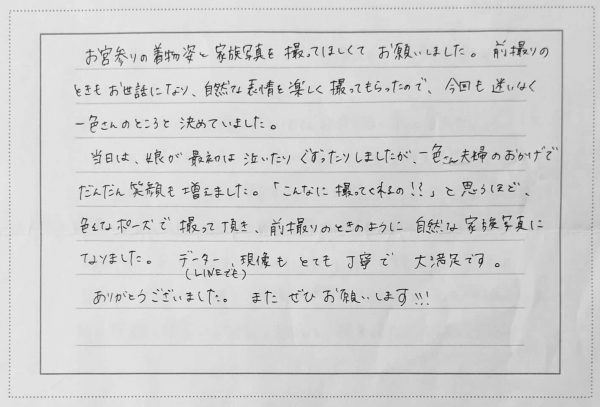 お宮参りの着物姿と家族写真を撮ってほしくてお願いしました。前撮りの
ときもお世話になり、自然な表情を楽しく撮ってもらったので、今回も迷いなく
一色さんのところと決めていました。
当日は、娘が最初は泣いたりぐずったりしましたが、一色さん夫婦のおかげで
だんだん笑顔も増えました。「こんなに撮ってくれるの!?」と思うほど、
色んなポーズで撮って頂き、前撮りのときのように自然な家族写真に
なりました。データー、現像もとても丁寧で大満足です。
(LINEでも)
ありがとうございました。またぜひお願いします!!!